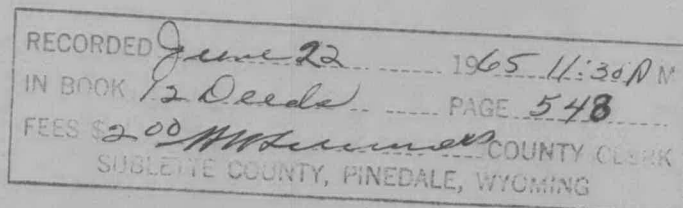 RECORDED June 22 1965 11:30 A M
IN BOOK 12 Deeds PAGE 548
FEES $2.00 COUNTY CLERK
SUBLETTE COUNTY, PINEDALE, WYOMING